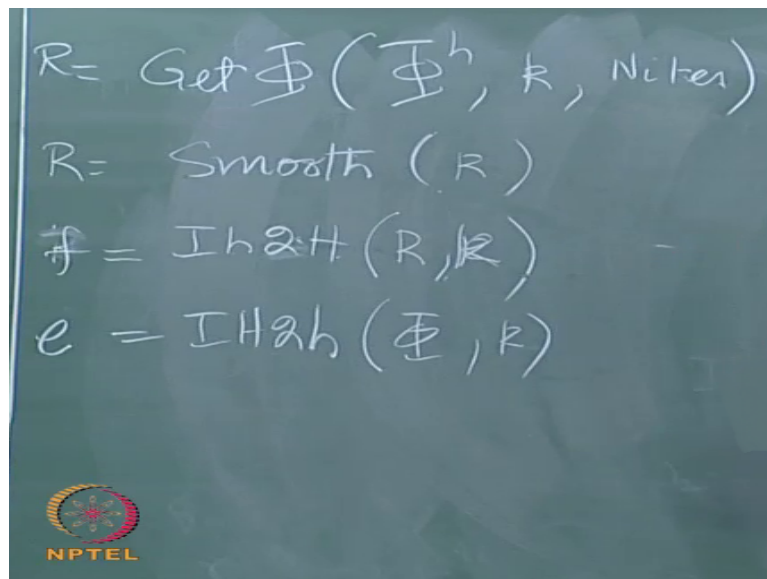 R = Get Φ ( Φ^h, k, Niter )
R = Smooth ( R )
f = Ih2H ( R, k )
e = IH2h ( Φ, k )
NPTEL